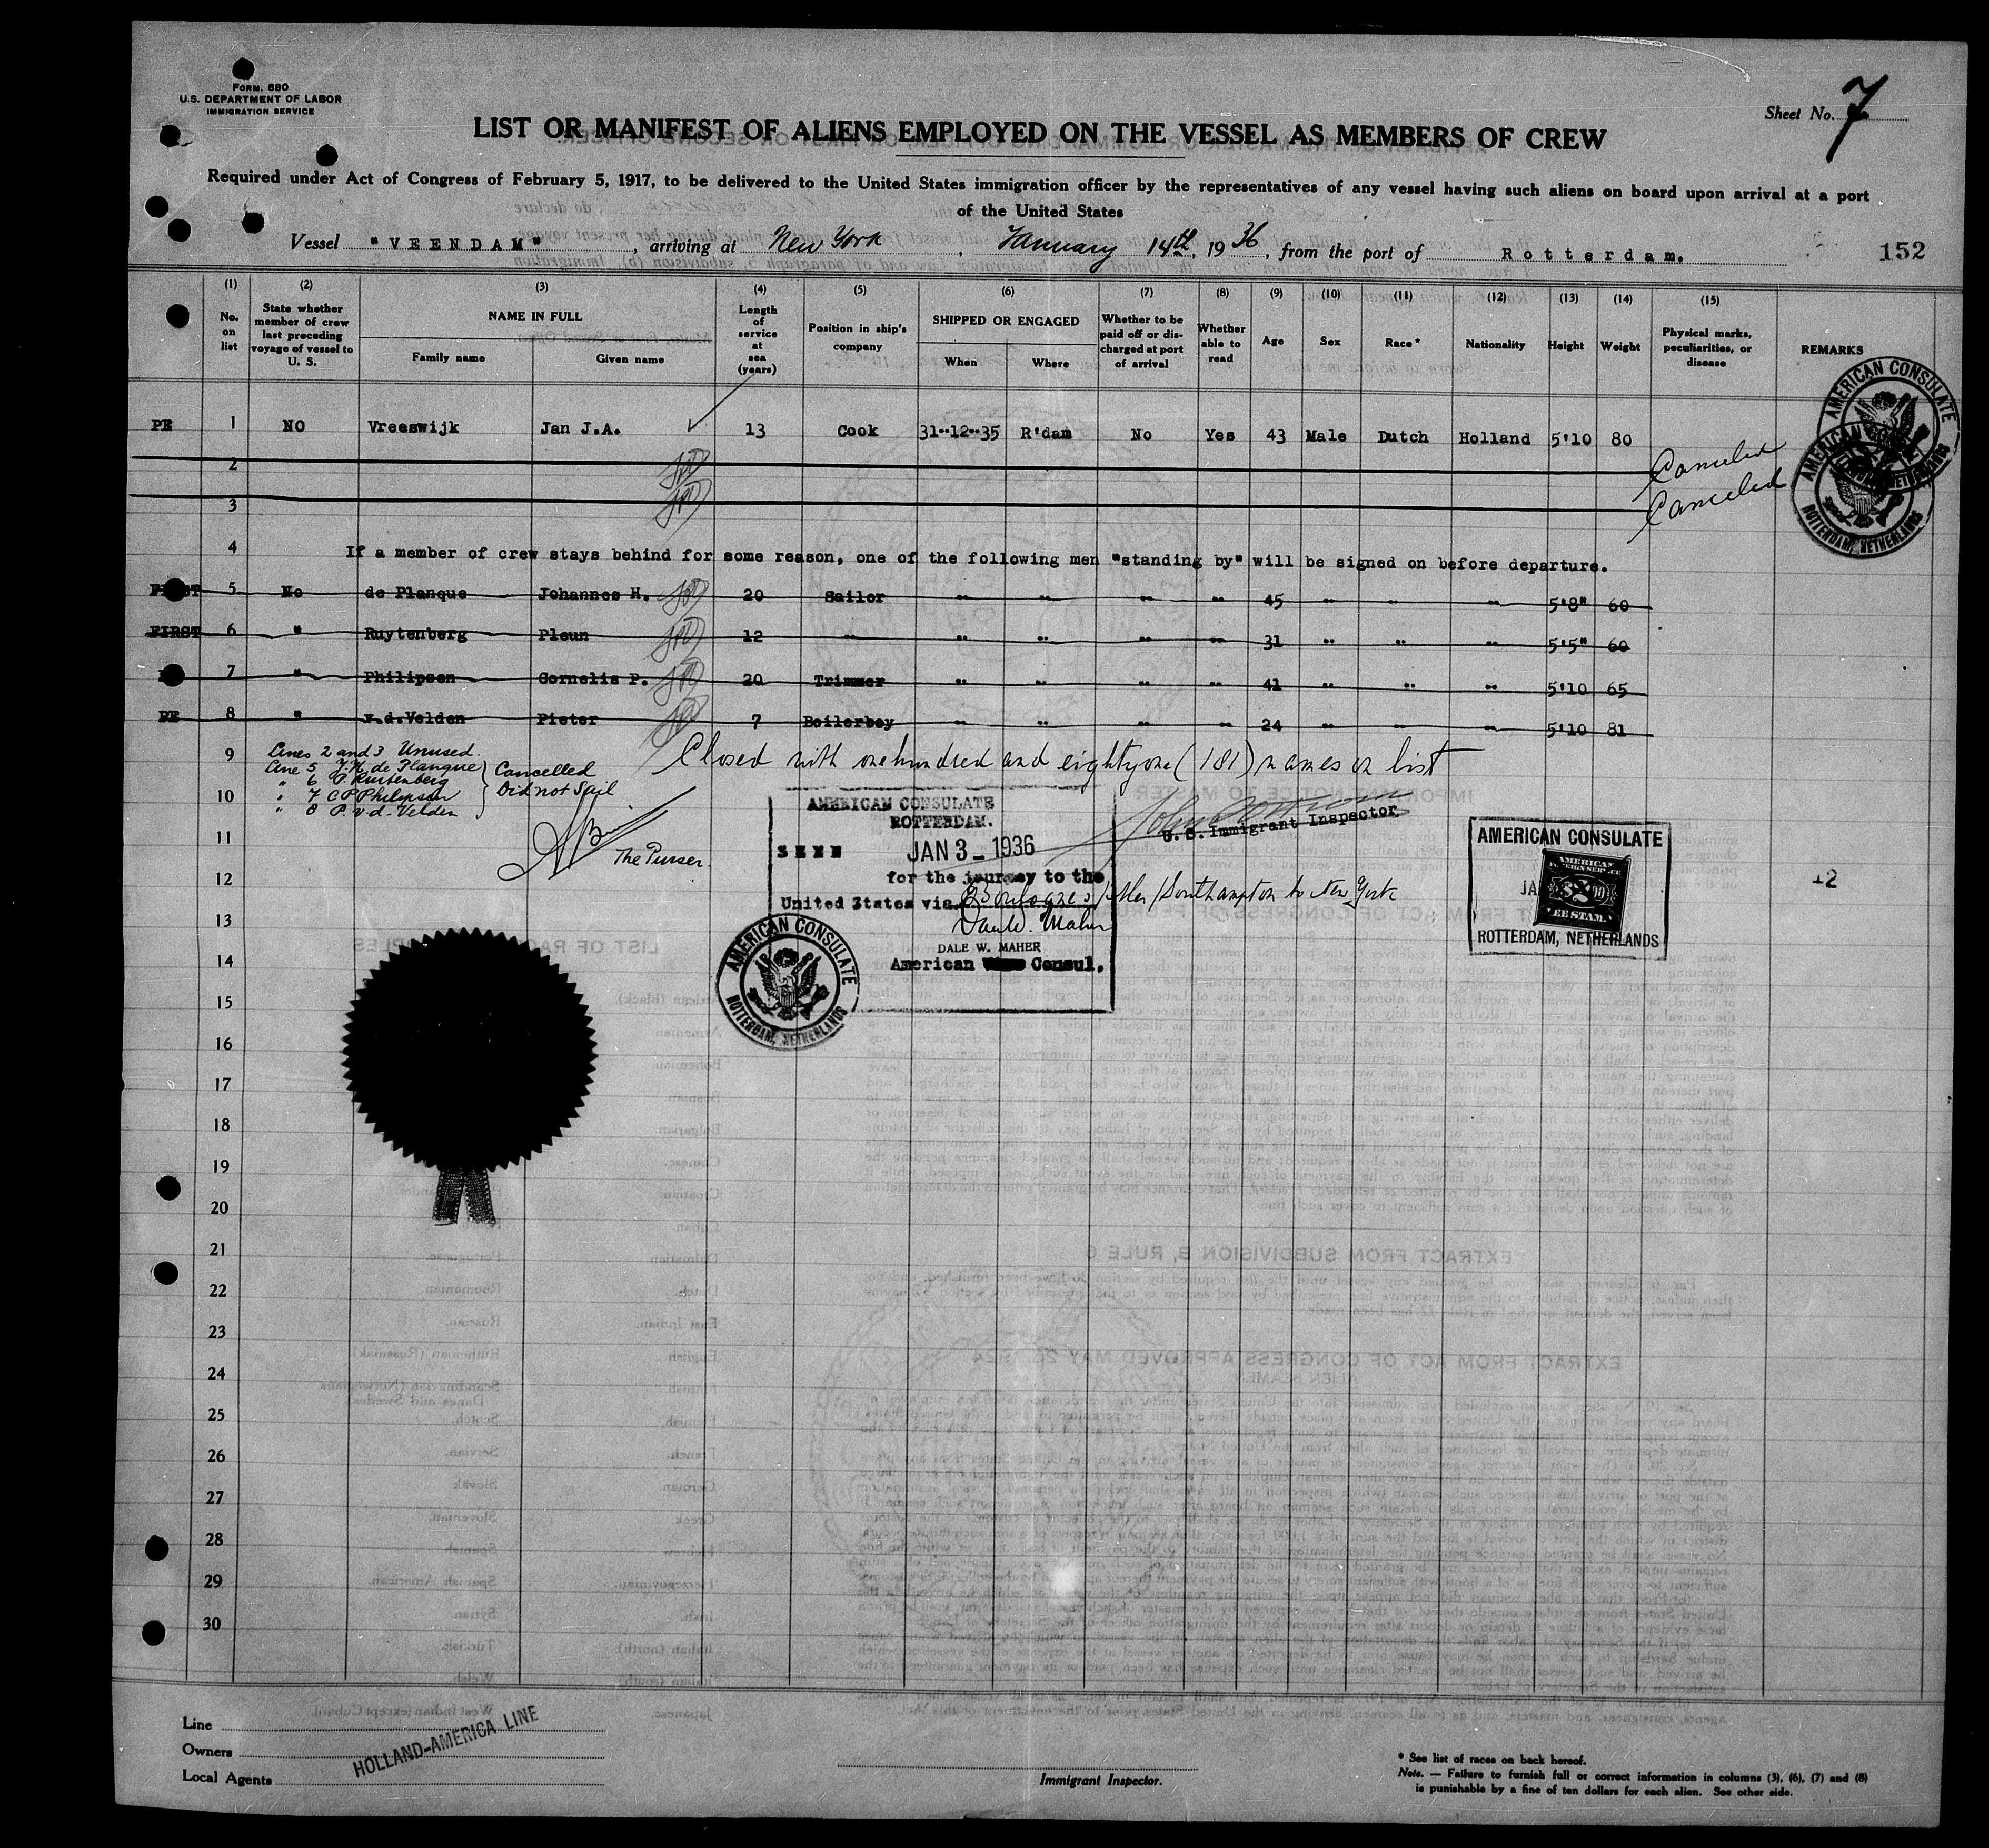 FORM. 680
U.S. DEPARTMENT OF LABOR
IMMIGRATION SERVICE
Sheet No. 7
LIST OR MANIFEST OF ALIENS EMPLOYED ON THE VESSEL AS MEMBERS OF CREW
Required under Act of Congress of February 5, 1917, to be delivered to the United States immigration officer by the representatives of any vessel having such aliens on board upon arrival at a port
of the United States
Vessel "VEENDAM", arriving at New York, January 14th, 1936, from the port of Rotterdam.
152
(1) (2) (3) (4) (5) (6) (7) (8) (9) (10) (11) (12) (13) (14) (15)
No. on list
State whether member of crew last preceding voyage of vessel to U. S.
NAME IN FULL
Family name
Given name
Length of service at sea (years)
Position in ship's company
SHIPPED OR ENGAGED
When
Where
Whether to be paid off or discharged at port of arrival
Whether able to read
Age
Sex
Race *
Nationality
Height
Weight
Physical marks, peculiarities, or disease
REMARKS
PE 1 NO Vreeswijk Jan J.A. 13 Cook 31-12-35 R'dam No Yes 43 Male Dutch Holland 5'10 80
2 Canceled
3 Canceled
AMERICAN CONSULATE
ROTTERDAM, NETHERLANDS
4 If a member of crew stays behind for some reason, one of the following men "standing by" will be signed on before departure.
FIRST 5 No de Planque Johannes H. 20 Sailor " " " " 45 " " " 5'8" 60
FIRST 6 " Ruytenberg Pleun 12 " " " " " 31 " " " 5'5" 60
7 " Philipsen Cornelis P. 20 Trimmer " " " " 41 " " " 5'10 65
PE 8 " v.d.Velden Pieter 7 Boilerboy " " " " 24 " " " 5'10 81
9
Lines 2 and 3 Unused.
Line 5 J.H. de Planque
" 6 P. Ruitenberg
" 7 C P Philipsen
" 8 P. v.d. Velden
Cancelled
Did not Sail
The Purser
Closed with one hundred and eighty one (181) names on list
U. S. Immigrant Inspector
AMERICAN CONSULATE
ROTTERDAM.
SEEN JAN 3 - 1936
for the journey to the
United States via Boulogne s/Mer/Southampton to New York
Dale W. Maher
DALE W. MAHER
American Consul.
AMERICAN CONSULATE
ROTTERDAM, NETHERLANDS
AMERICAN CONSULATE
AMERICAN
FOREIGN SERVICE
FEE STAMP
ROTTERDAM, NETHERLANDS
10
11
12
13
14
15
16
17
18
19
20
21
22
23
24
25
26
27
28
29
30
Line
Owners
Local Agents
HOLLAND-AMERICA LINE
Immigrant Inspector.
* See list of races on back hereof.
Note. — Failure to furnish full or correct information in columns (3), (6), (7) and (8)
is punishable by a fine of ten dollars for each alien. See other side.